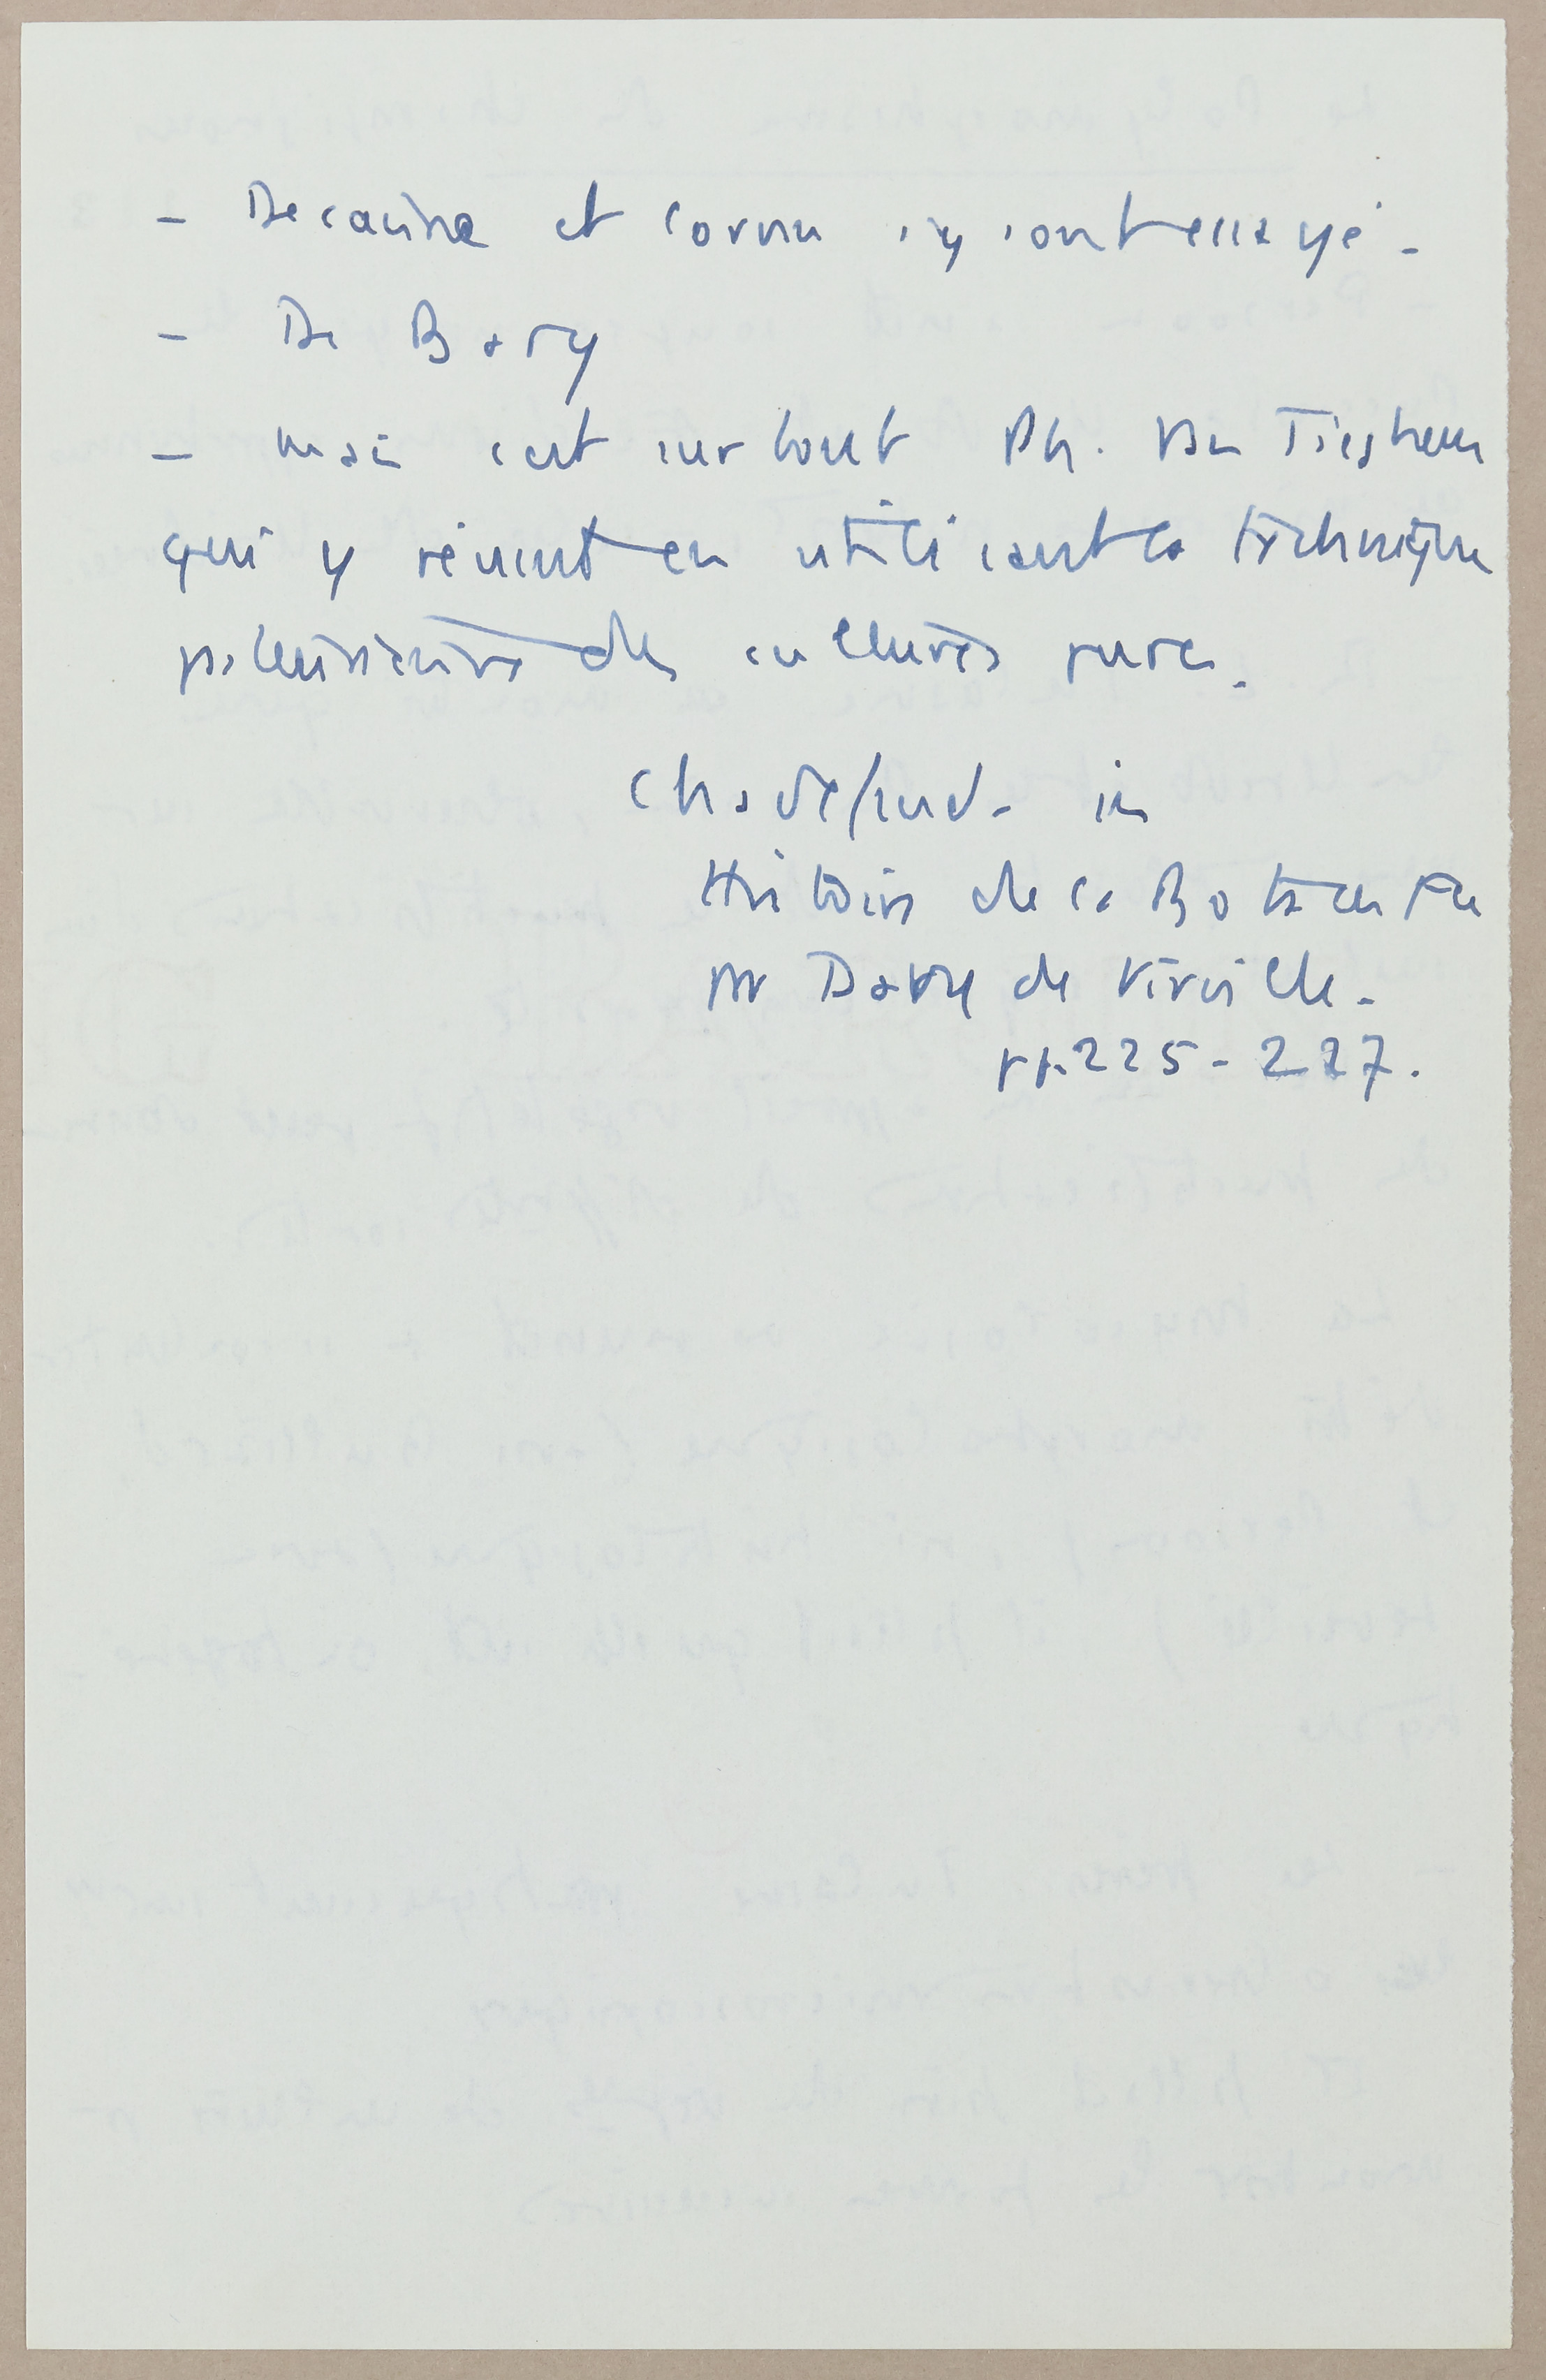 - Decaisne et Cornu s'y sont essayé.
- De Bary
- mais c'est surtout Ph. Van Tieghem
qui y réussit en utilisant la technique
pasteurienne des cultures pures.
Chadefaud. in
Histoire de la Botanique
par Davy de Virville.
pp. 225-227.